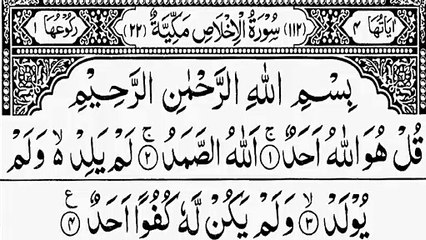 اٰيَاتُهَا ٤ (١١٢) سُوْرَةُ الْاِخْلَاصِ مَكِّيَّةٌ (٢٢) رُكُوْعُهَا ١
بِسْمِ اللّٰهِ الرَّحْمٰنِ الرَّحِيْمِ
قُلْ هُوَ اللّٰهُ اَحَدٌ ۚ ١ اَللّٰهُ الصَّمَدُ ۚ ٢ لَمْ يَلِدْ ۙ۬ وَلَمْ
يُوْلَدْ ۙ ٣ وَلَمْ يَكُنْ لَّهٗ كُفُوًا اَحَدٌ ٤ ع